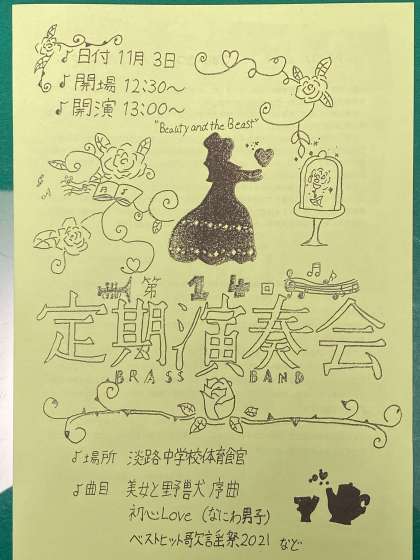 ♪ 日付 11月 3日
♪ 開場 12:30〜
♪ 開演 13:00〜
"Beauty and the Beast"
第14回
定期演奏会
BRASS BAND
♪ 場所 淡路中学校体育館
♪ 曲目 美女と野獣 序曲
初心Love (なにわ男子)
ベストヒット歌謡祭2021 など